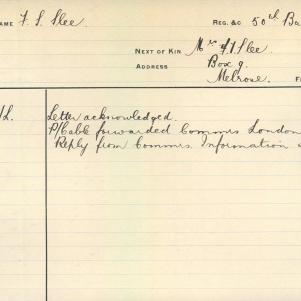 NAME F. S. Slee REG. &C 50th Ba
NEXT OF KIN Mrs F S Slee
ADDRESS Box 9.
Melrose.
Letter acknowledged.
P/Cable forwarded Commrs London
Reply from Commrs. Information